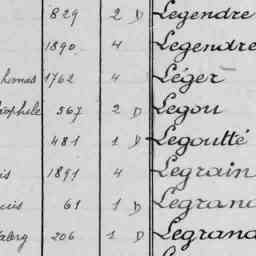 829 2 D Legendre
1890 4 Legendre
homas 1762 4 Léger
éophile 567 2 D Legou
481 1 D Legoutté
is 1891 4 Legrain
uis 61 1 D Legrand
206 1 D Legrand